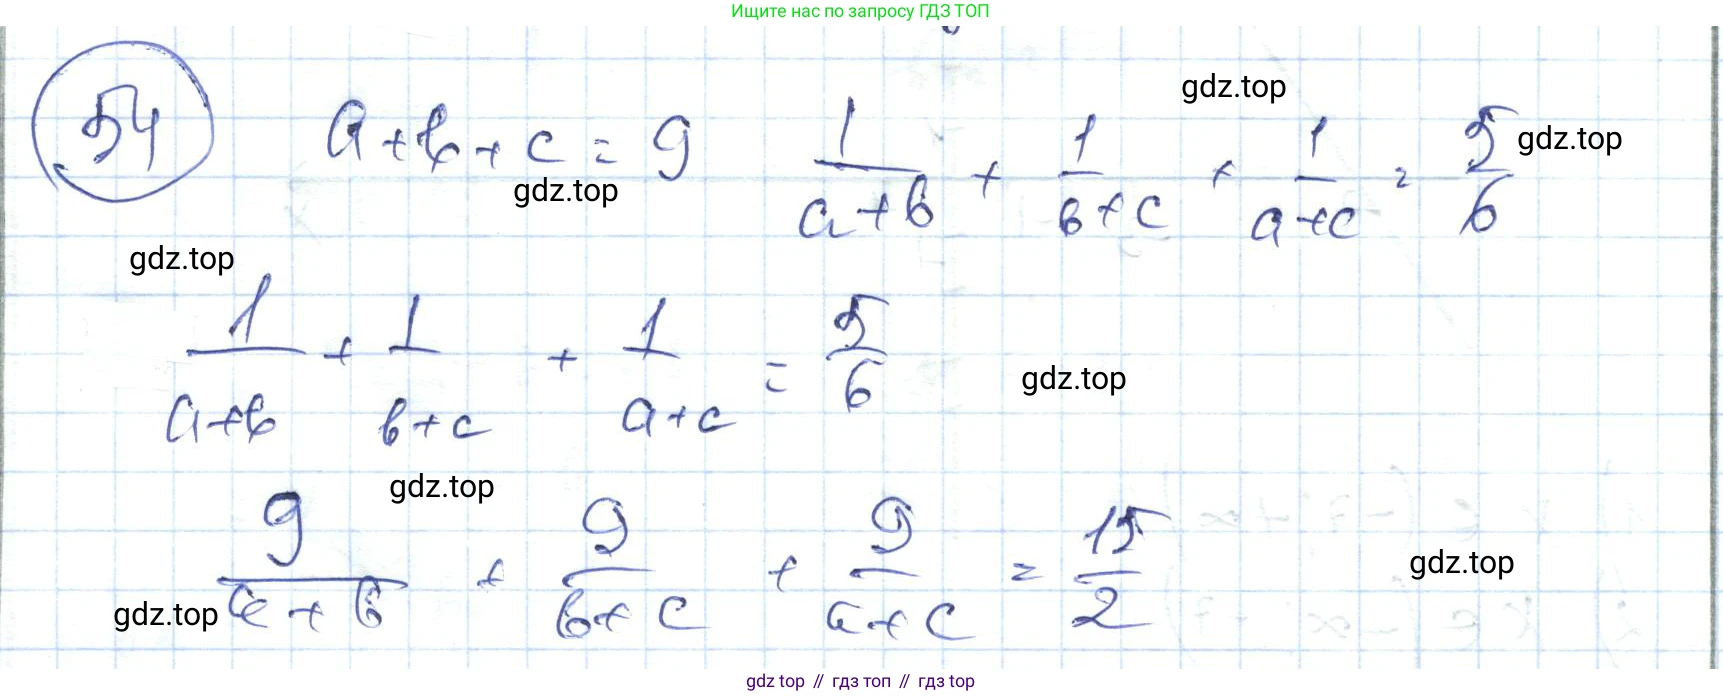 Ищите нас по запросу ГДЗ ТОП
gdz.top
54 a+b+c=9 1/(a+b) + 1/(b+c) + 1/(a+c) = 5/6 gdz.top
gdz.top
gdz.top
1/(a+b) + 1/(b+c) + 1/(a+c) = 5/6 gdz.top
gdz.top
9/(a+b) + 9/(b+c) + 9/(a+c) = 15/2 gdz.top
gdz.top
gdz top // гдз топ // гдз top